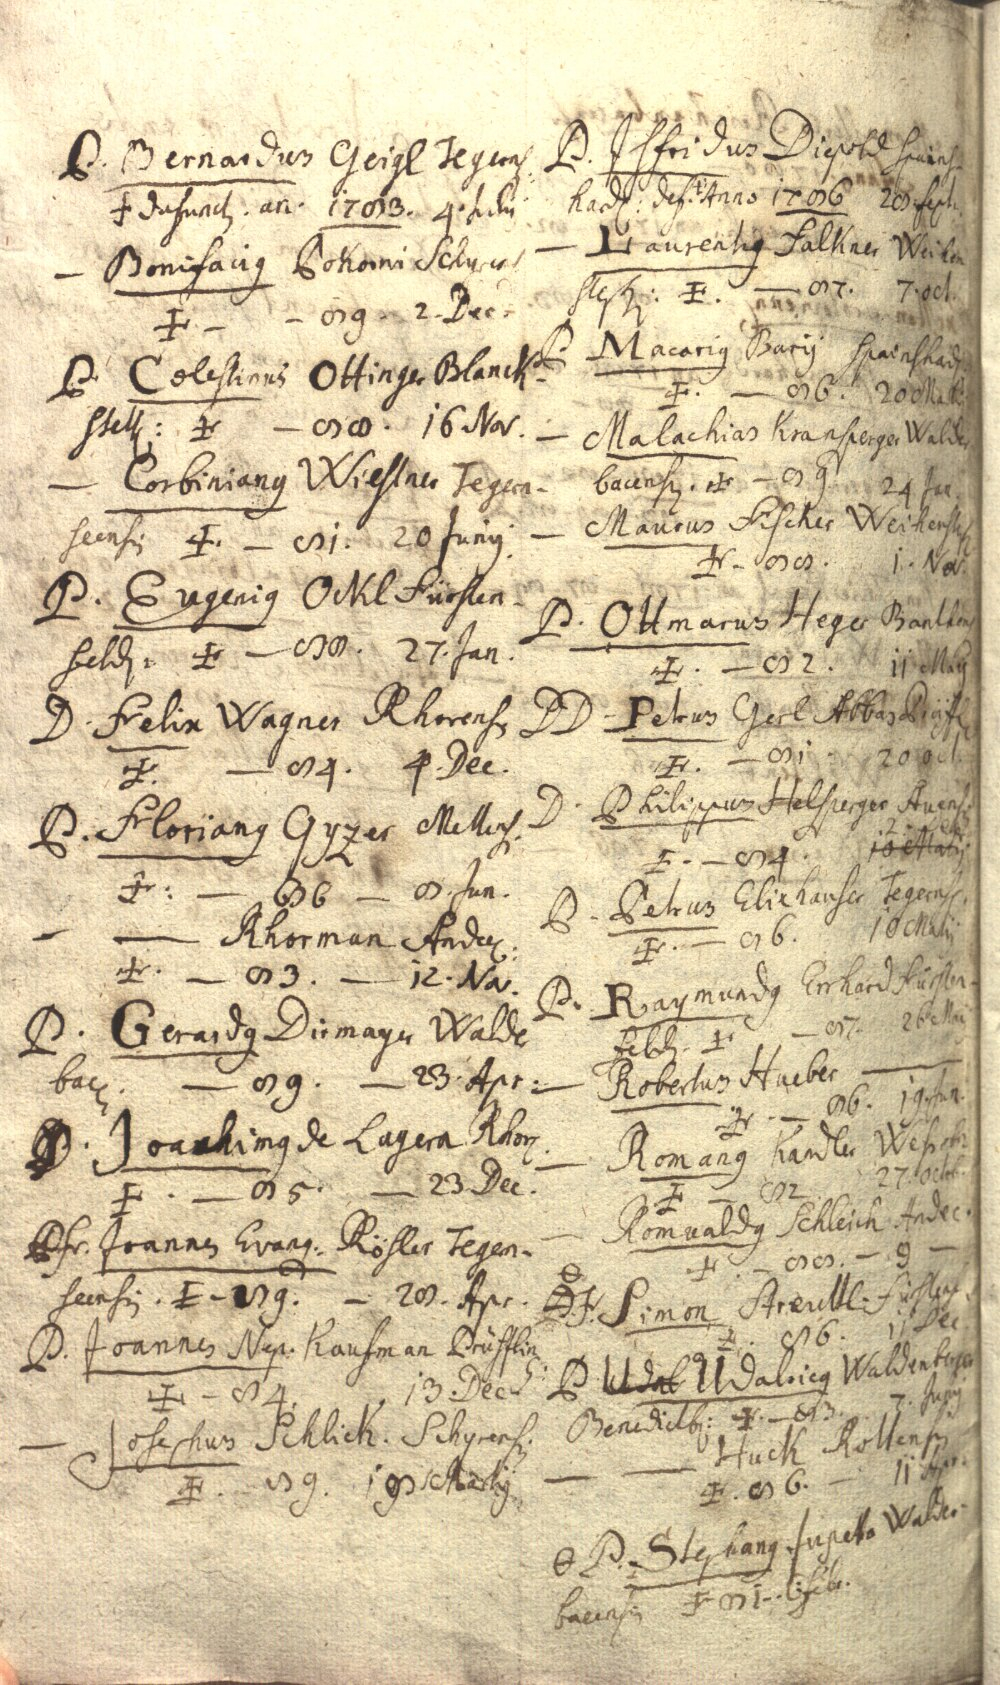 P. Bernardus Geigl Tegerns.
‡ defunct. an. 1783. 4. Julij
— Bonifacig Pokorni Schyrens
‡ — — 89. 2. Dec.
P. Cœlestinus Ottinger Blanck-
stett: ‡ — 88. 16 Nov.
— Corbiniang Wiestner Tegern-
seensis ‡. — 81. 20 Junij
P. Eugenig Ockl Fürsten-
feld: ‡ — 88. 27. Jan.
D. Felix Wagner Rhorens
‡. — 84. 4. Dec.
P. Floriang Gyzer Mettens.
‡: — 86 — 8. Jan.
— — Rhorman Andex.
‡. — 83. — 12. Nov.
P. Gerardg Dirmayer Walde
bac. — 89. — 23. Apr:
P. Joachimg de Lagera Rhor.
‡. — 85. — 23 Dec.
fr. Joannes Evang. Rösler Tegern-
seensis. ‡ — 89. — 28. Apr.
P. Joannes Nep. Kaufman Prüfling:
‡ — 84. 13. Dec
— Josephus Schlick. Schyrens
‡. — 89. 19 Martij
P. Iffridus Diepold Spains-
hard: def. Anno 1786 28. sept.
— Laurentig Falkner Weihen
steph: ‡. — 87. 7. oct.
P. Macarig Barij Spainshard
‡. — 86. 20 Maij
— Malachias Kransperger Walder
bacens. ‡ — 89 24 Jan.
— Maurus Fischer Weihenste
‡ — 88. 1. Nov.
P. Ottmarus Heger Banthens
‡. — 82. 11 Maij
DD — Petrus Gerl Abbas
‡. — 81 20 oct.
D. Philippus Helsperger
‡. — 84. 2
P. Petrus Elixhauser Tegerns.
‡. — 86. 10 Maij
P. Raymundg Erhard Fürsten-
feld. ‡ — 87. 26 Mai
— Robertus Hueber —
‡. — 86. 19. Jun.
— Romang Kandler Wessobr
‡ — 82 27. octob.
— Romualdg Schleich Andec.
‡. — 88. — 9 —
Fr. Simon Streuttl. Fürstenf.
‡. 86. 11 Dec.
P. Udalricg Waldenberger
Benedictb: ‡. — 83. 7. Junij
— — Huck Rottens
‡. 86. — 11 Apr.
P. Stephang Walder-
bacensis ‡ 81. febr.